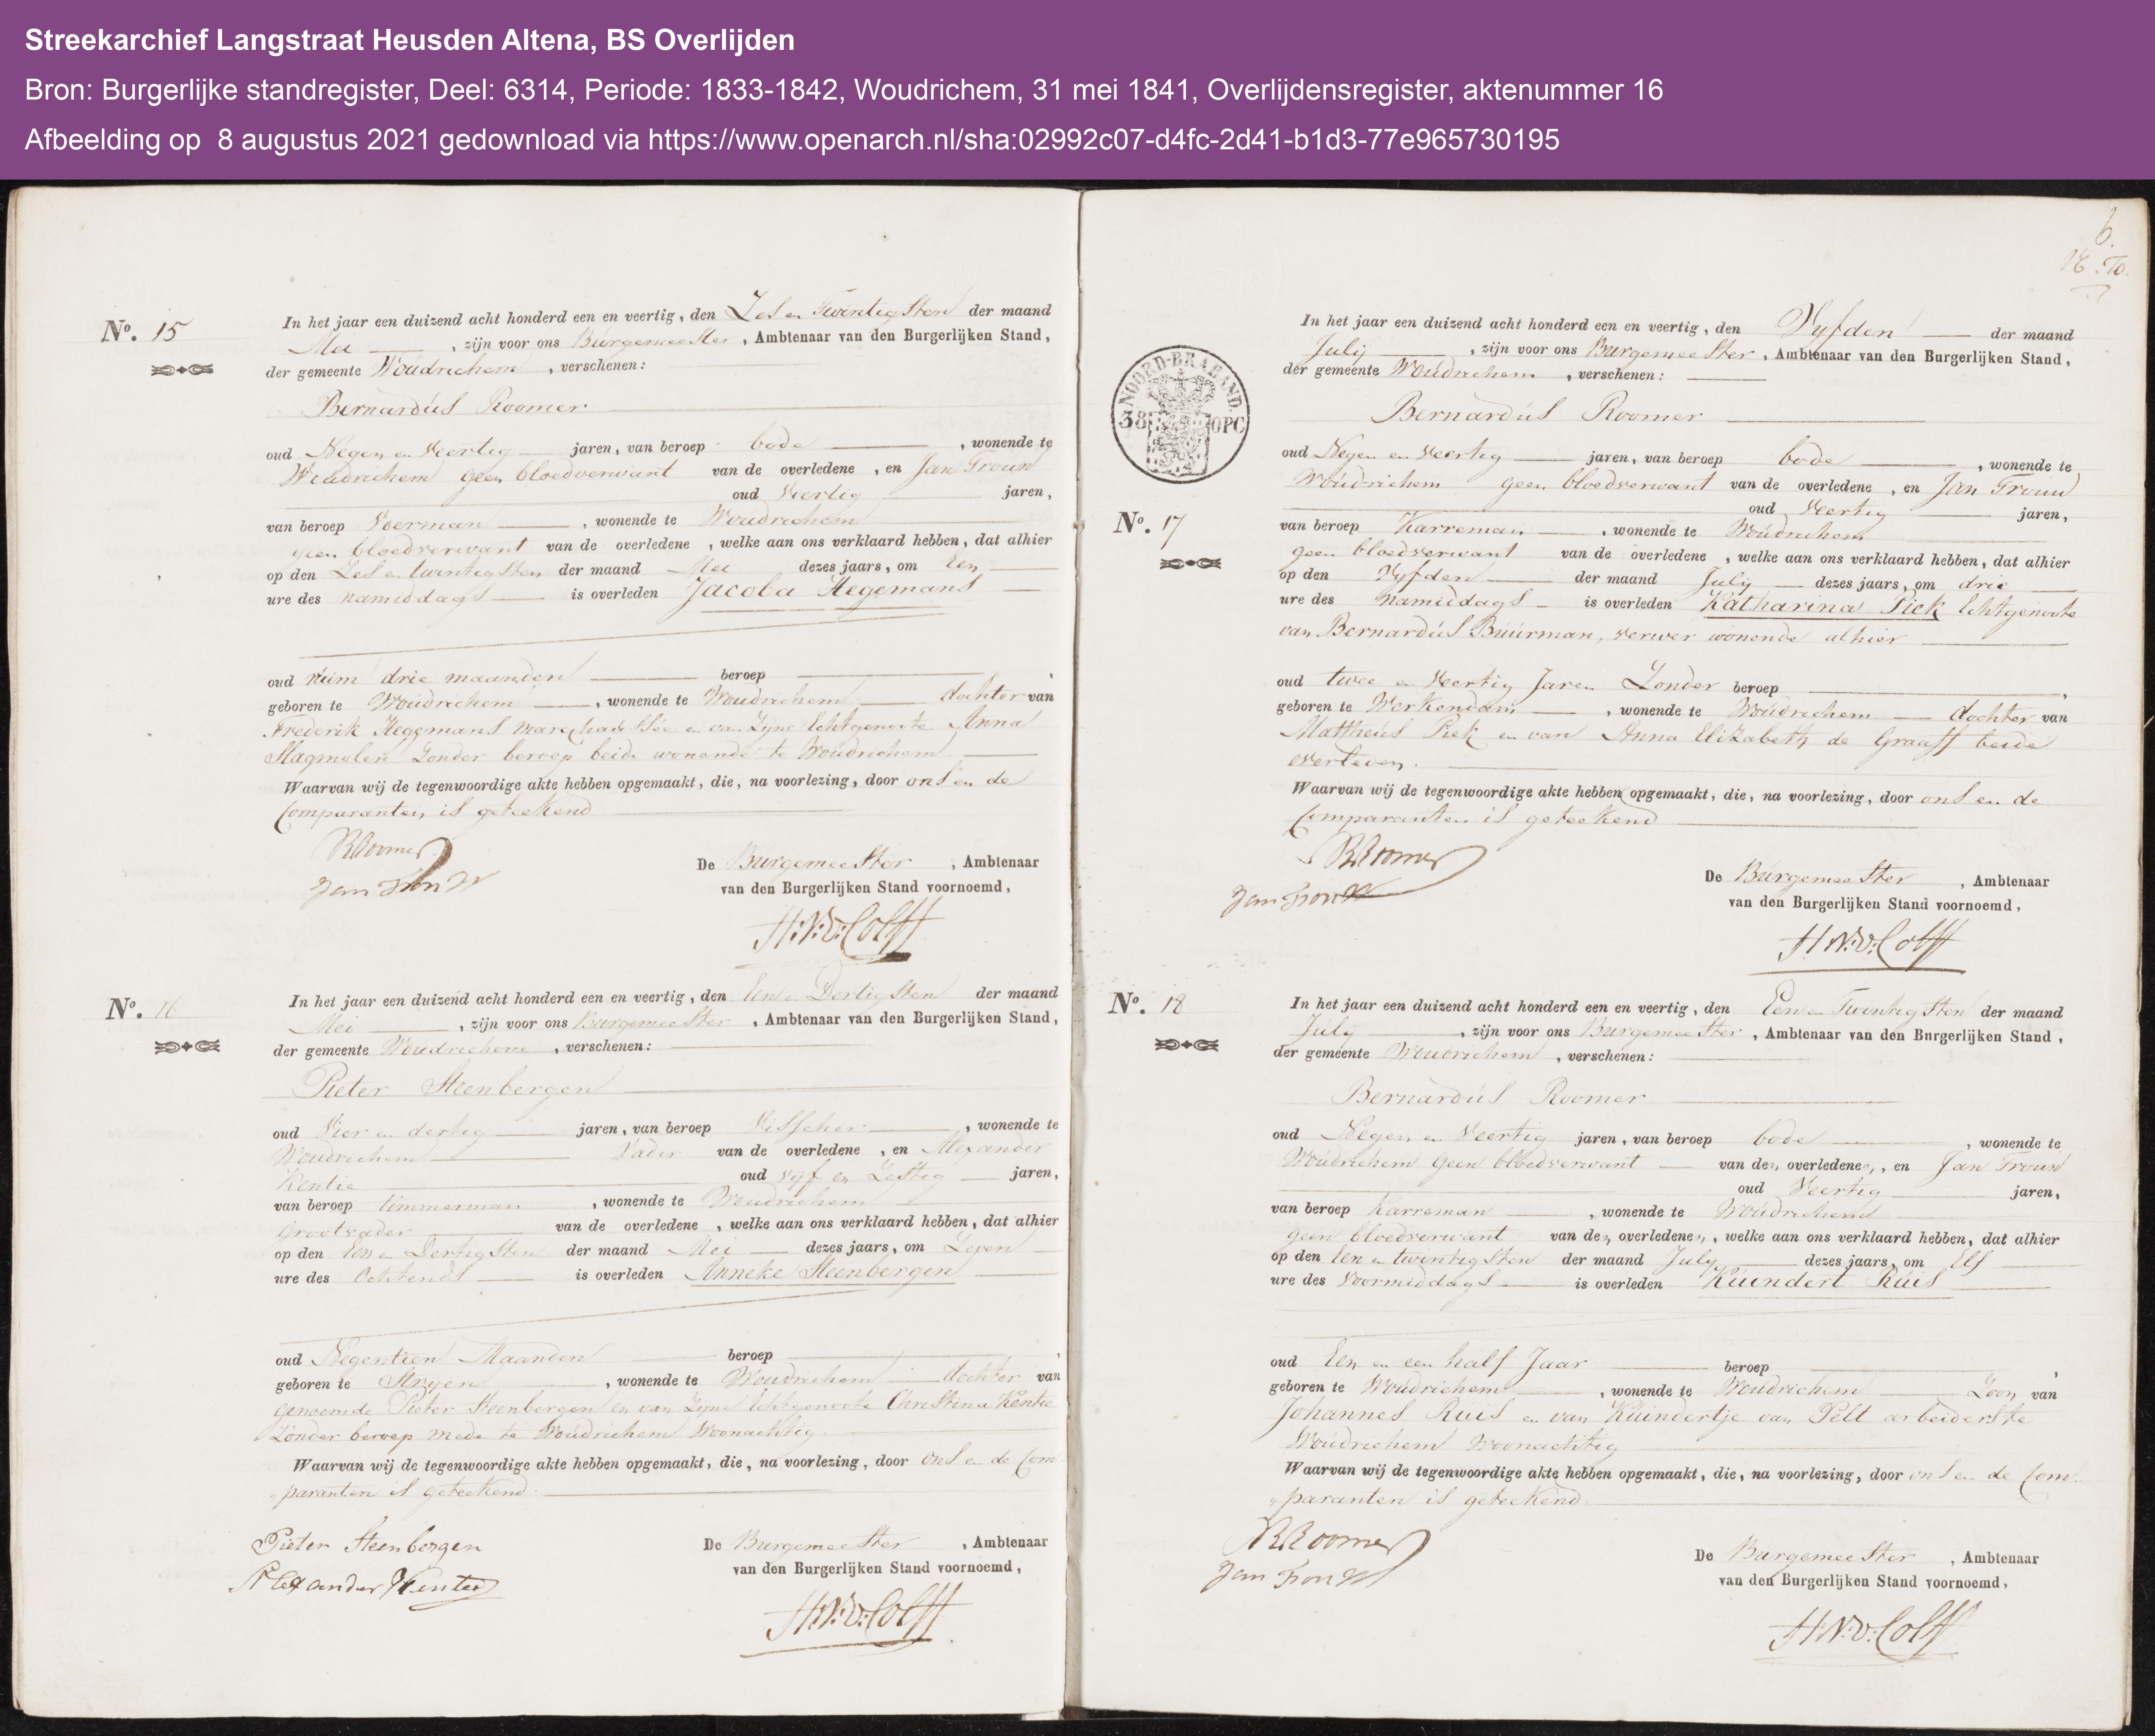 Streekarchief Langstraat Heusden Altena, BS Overlijden
Bron: Burgerlijke standregister, Deel: 6314, Periode: 1833-1842, Woudrichem, 31 mei 1841, Overlijdensregister, aktenummer 16
Afbeelding op 8 augustus 2021 gedownload via https://www.openarch.nl/sha:02992c07-d4fc-2d41-b1d3-77e965730195
No. 15
In het jaar een duizend acht honderd een en veertig, den Zes en Twintigsten der maand
Mei, zijn voor ons Burgemeester, Ambtenaar van den Burgerlijken Stand,
der gemeente Woudrichem, verschenen:
Bernardus Roomer
oud Negen en Veertig jaren, van beroep bode, wonende te
Woudrichem geen bloedverwant van de overledene, en Jan Trouw
oud Veertig jaren,
van beroep Voerman, wonende te Woudrichem
geen bloedverwant van de overledene, welke aan ons verklaard hebben, dat alhier
op den Zes en twintigsten der maand Mei dezes jaars, om Een
ure des namiddags is overleden Jacoba Hegemans
oud ruim drie maanden beroep ,
geboren te Woudrichem, wonende te Woudrichem dochter van
Frederik Hegemans marechaussée en van Zyne Echtgenoote Anna
Slagmolen Zonder beroep beide wonende te Woudrichem.
Waarvan wij de tegenwoordige akte hebben opgemaakt, die, na voorlezing, door ons en de
Comparanten is geteekend
BRoomer
Jan Trouw
De Burgemeester, Ambtenaar
van den Burgerlijken Stand voornoemd,
H:N:v:Colff
No. 16
In het jaar een duizend acht honderd een en veertig, den Een en Dertigsten der maand
Mei, zijn voor ons Burgemeester, Ambtenaar van den Burgerlijken Stand,
der gemeente Woudrichem, verschenen:
Pieter Steenbergen
oud Vier en dertig jaren, van beroep Visscher, wonende te
Woudrichem Vader van de overledene, en Alexander
Kentie oud vyf en Zestig jaren,
van beroep timmerman, wonende te Woudrichem
Grootvader van de overledene, welke aan ons verklaard hebben, dat alhier
op den Een en Dertigsten der maand Mei dezes jaars, om Zeven
ure des Ochtends is overleden Anneke Steenbergen
oud Negentien Maanden beroep ,
geboren te Stryen, wonende te Woudrichem dochter van
genoemde Pieter Steenbergen en van Zyne Echtgenoote Christina Kentie
Zonder beroep mede te Woudrichem Woonachtig.
Waarvan wij de tegenwoordige akte hebben opgemaakt, die, na voorlezing, door ons en de Com
"paranten is geteekend.
Pieter Steenbergen
Alexander Kentie
De Burgemeester, Ambtenaar
van den Burgerlijken Stand voornoemd,
H:N:v:Colff
6.
NOORD-BRABAND.
38 OPC
No. 17
In het jaar een duizend acht honderd een en veertig, den Vyfden der maand
July, zijn voor ons Burgemeester, Ambtenaar van den Burgerlijken Stand,
der gemeente Woudrichem, verschenen:
Bernardus Roomer
oud Negen en Veertig jaren, van beroep bode, wonende te
Woudrichem geen bloedverwant van de overledene, en Jan Trouw
oud Veertig jaren,
van beroep Karreman, wonende te Woudrichem
geen bloedverwant van de overledene, welke aan ons verklaard hebben, dat alhier
op den Vyfden der maand July dezes jaars, om drie
ure des namiddags is overleden Katharina Piek Echtgenoote
van Bernardus Buurman, verwer wonende alhier
oud twee en Veertig Jaren Zonder beroep ,
geboren te Werkendam, wonende te Woudrichem dochter van
Mattheus Piek en van Anna Elizabeth de Graaff beide
overleden.
Waarvan wij de tegenwoordige akte hebben opgemaakt, die, na voorlezing, door ons en de
Comparanten is geteekend
BRoomer
Jan Trouw
De Burgemeester, Ambtenaar
van den Burgerlijken Stand voornoemd,
H:N:v:Colff
No. 18
In het jaar een duizend acht honderd een en veertig, den Een en Twintigsten der maand
July, zijn voor ons Burgemeester, Ambtenaar van den Burgerlijken Stand,
der gemeente Woudrichem, verschenen:
Bernardus Roomer
oud Negen en Veertig jaren, van beroep bode, wonende te
Woudrichem geen bloedverwant van den overledenen, en Jan Trouw
oud Veertig jaren,
van beroep Karreman, wonende te Woudrichem
geen bloedverwant van den overledenen, welke aan ons verklaard hebben, dat alhier
op den Een en twintigsten der maand July dezes jaars, om Elf
ure des Voormiddags is overleden Kuindert Ruis
oud Een en een half Jaar beroep ,
geboren te Woudrichem, wonende te Woudrichem Zoon van
Johannes Ruis en van Kuindertje van Pelt arbeiders te
Woudrichem Woonachtig
Waarvan wij de tegenwoordige akte hebben opgemaakt, die, na voorlezing, door ons en de Com
"paranten is geteekend.
BRoomer
Jan Trouw
De Burgemeester, Ambtenaar
van den Burgerlijken Stand voornoemd,
H:N:v:Colff